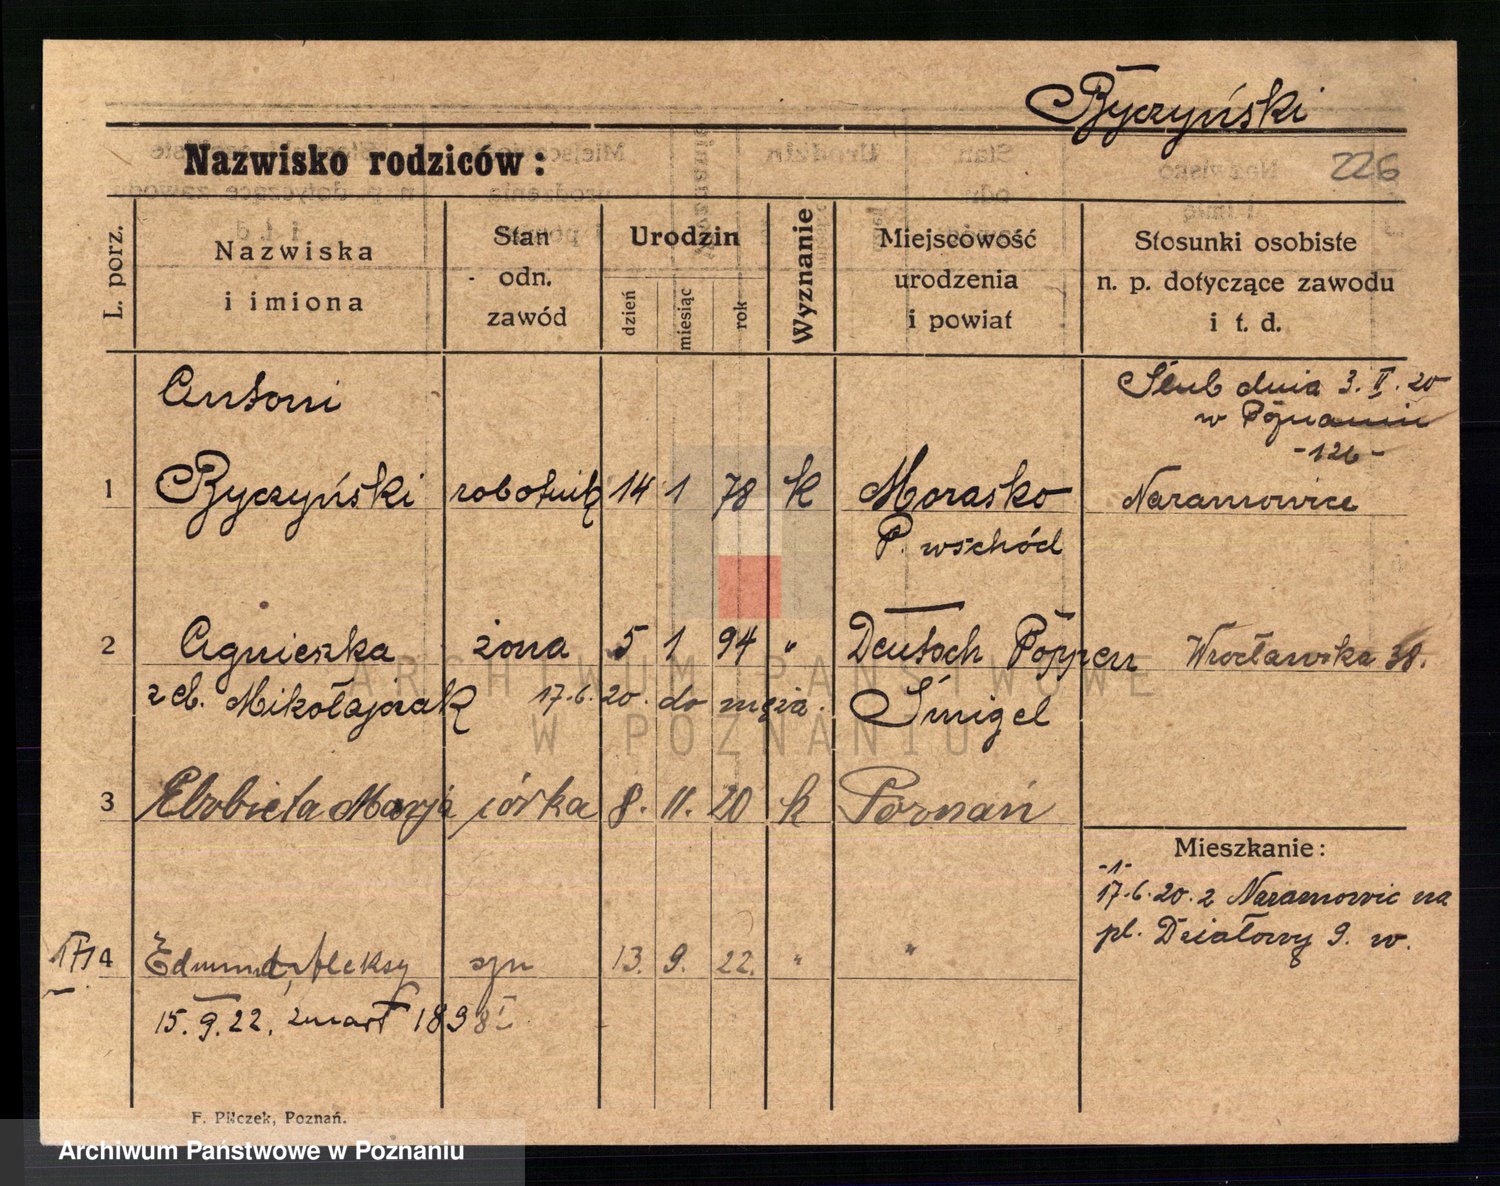 Byczyński
226
Nazwisko rodziców:
L. porz.
Nazwiska
i imiona
Stan
odn.
zawód
Urodzin
dzień
miesiąc
rok
Wyznanie
Miejscowość
urodzenia
i powiat
Stosunki osobiste
n. p. dotyczące zawodu
i t. d.
Antoni
Ślub dnia 3. II. 20
w Poznaniu
-126-
1 Byczyński robotnik 14 1 78 k Morasko Naramowice
P. wschód
2 Agnieszka żona 5 1 94 " Deutsch Poppen Wrocławska 38.
z cb. Mikołajczak 17.6.20. do męża. Śmigel
3 Elżbieta Marja córka 8. 11. 20 k Poznań
Mieszkanie:
-1-
17.6.20. z Naramowic na
pl. Działowy 9. w.
4 Edmund, Aleksy syn 13. 9. 22. " "
15.9.22. zmarł 1898 I
F. Pilczek, Poznań.
ARCHIWUM PAŃSTWOWE
W POZNANIU
Archiwum Państwowe w Poznaniu